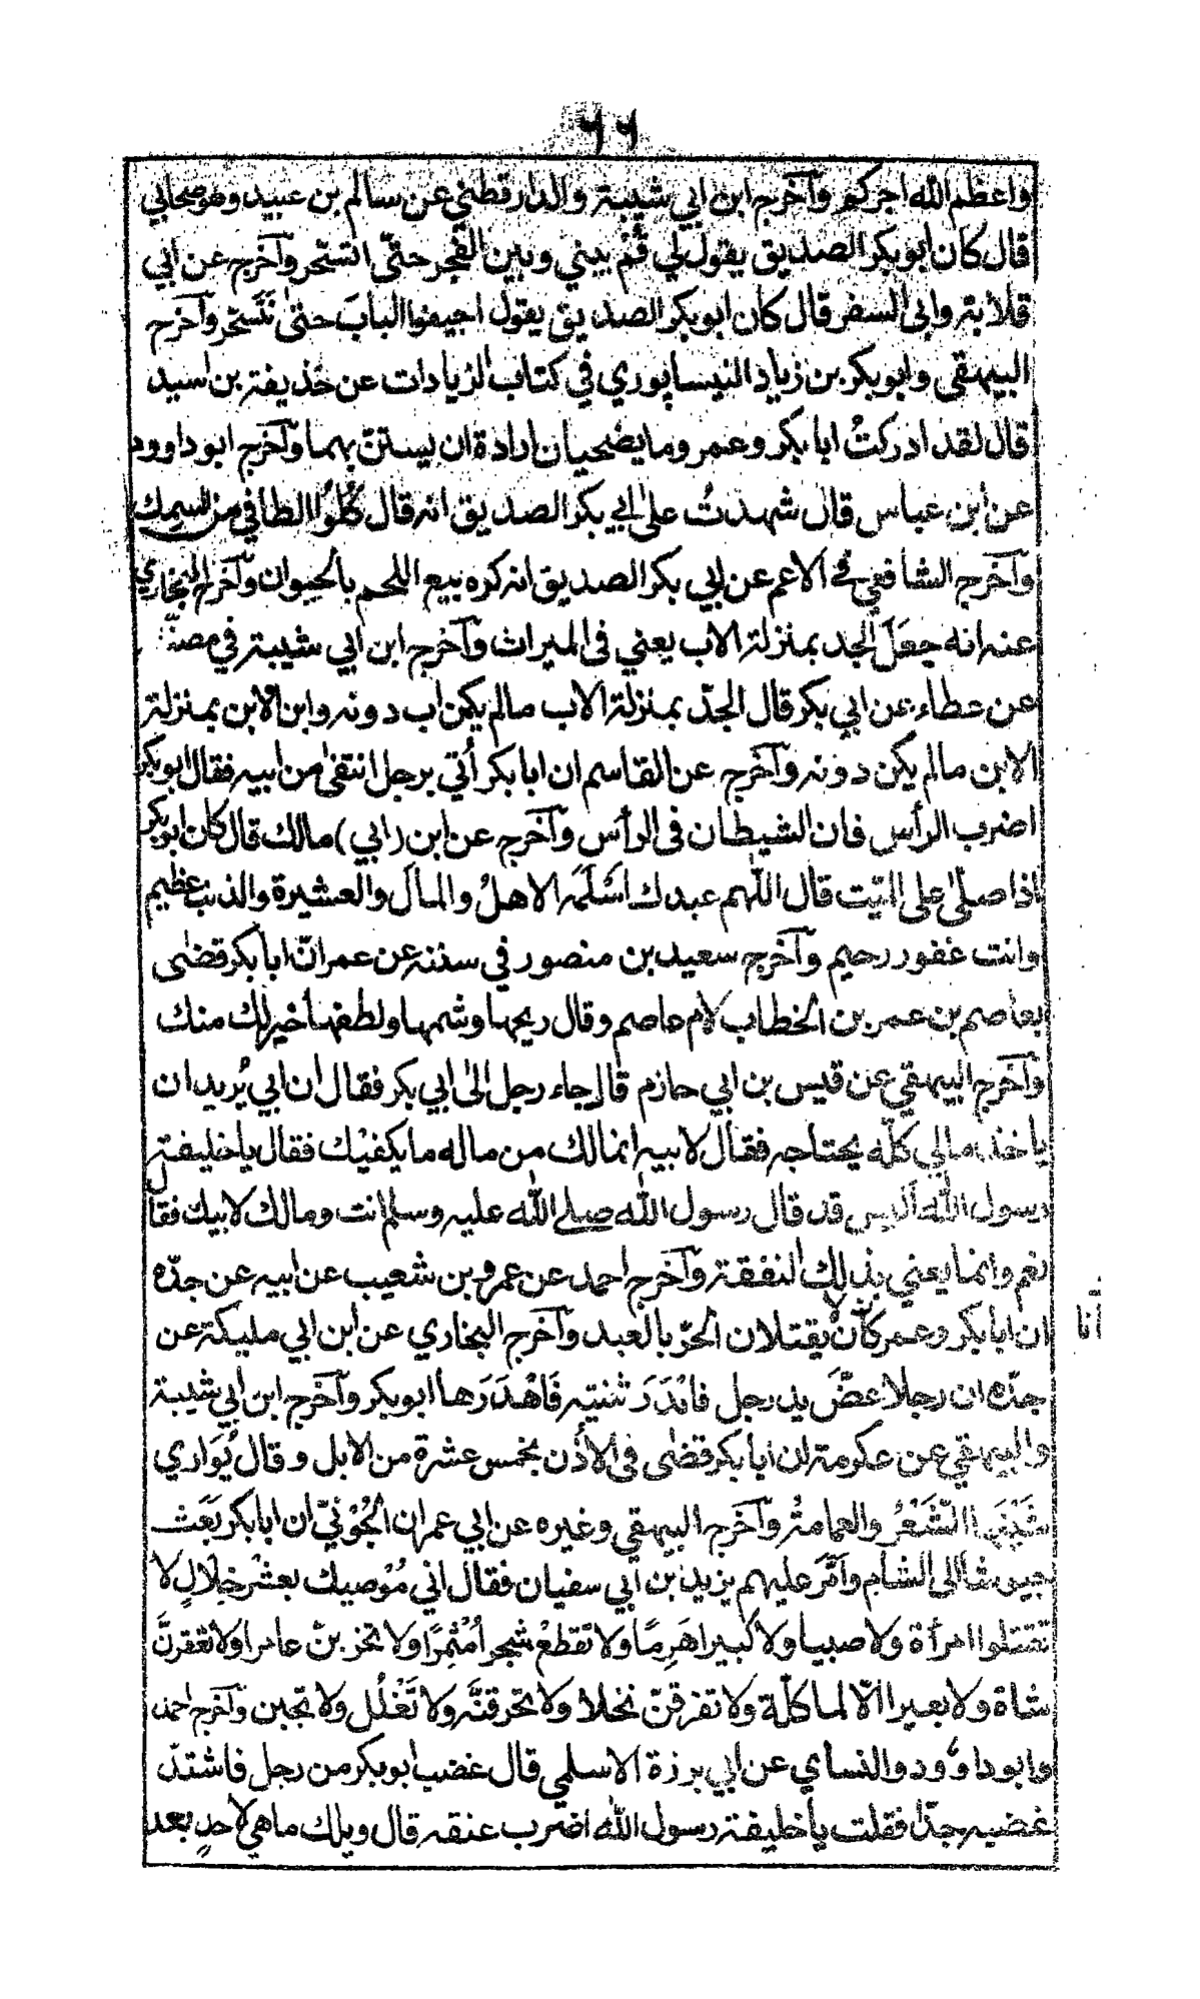 ٦٦
واعظم الله اجركم وآخرج ابن ابي شيبة والدارقطني عن سالم بن عبيد وهو صحابي
قال كان ابو بكر الصديق يقول لي قُمْ بيني وبين الفجر حتّى اتسحّر وآخرج عن ابي
قلابة وابي السفر قال كان ابو بكر الصديق يقول اجيفوا البابَ حتىٰ نَتَسَحّر وآخرج
البيهقى وابو بكر بن زياد النيسابوري في كتاب الزيادات عن حُذيفة بن اسيد
قال لقد ادركتُ ابا بكر وعمر وما يضحيان ارادة ان يستنّ بهما وآخرج ابو داوود
عن ابن عباس قال شهدتُ على ابي بكر الصديق انه قال كُلُوُا الطافي من السمك
وآخرج الشافعي في الاعم عن ابي بكر الصديق انه كره بيع اللحم بالحيوان وآخرج البخاري
عنه انه جعَلَ الجد بمنزلة الاب يعني فى الميراث وآخرج ابن ابي شيبة في مصنّفه
عن عطاء عن ابي بكر قال الجدّ بمنزلة الاب مالم يكن اب دونه وابن الابن بمنزلة
الابن مالم يكن دونه وآخرج عن القاسم ان ابا بكر أُتي برجل انتفىٰ من ابيه فقال ابو بكر
اضرب الرأس فان الشيطان فى الرأس وآخرج عن ابن (ابي) مالك قال كان ابو بكر
اذا صلّىٰ على الميّت قال اللّهم عبدك اَسْلَمَه الاهلُ والمالَ والعشيرة والذنب عظيم
وانت غفور رحيم وآخرج سعيد بن منصور في سننه عن عمر انّ ابا بكر قضىٰ
بعاصم بن عمر بن الخطاب لأم عاصم وقال ريحها وشمها ولطفها خير لك منك
وآخرج البيهقي عن قيس بن ابي حازم قال جاء رجل الىٰ ابي بكر فقال ان ابي يُريد ان
ياخذ مالي كلّه يحتاجه فقال لابيه انما لك من ماله ما يكفيك فقال يا خليفة
رسول الله اليس قد قال رسول الله صلے الله عليه وسلم انت ومالك لابيك فقال
نعم وانما يعني بذلك النفقة وآخرج احمد عن عمرو بن شعيب عن ابيه عن جدّه
ان ابا بكر وعمر كانا لا يقتلان الحرّ بالعبد وآخرج البخاري عن ابن ابي مليكة عن
انا
جدّه ان رجلا عضّ يد رجل فاندَرَ ثنيته فَاهْدَرَها ابو بكر وآخرج ابن ابي شيبة
والبيهقي عن عكرمة ان ابا بكر قضىٰ فى الأذن بخمس عشرة من الابل وقال يُوَاري
شَيْنَها الشَّعْرُ والعمامةُ وآخرج البيهقي وغيره عن ابي عمران الجُوْنيّ ان ابا بكر بَعَث
جيوشا الى الشام وآمّر عليهم يزيد بن ابي سفيان فقال اني مُوْصيك بعشْر خِلَالٍ لا
تقتلوا امرأة ولا صبيا ولا كبيرا هَرِمًا ولا تقطعْ شجرا مُثمِرًا ولا تخربنّ عامرا ولا تعقرنّ
شاة ولا بعيرا الّا لماكلّة ولا تفرقنّ نخلا ولا تحرقنَّه ولا تَغْلُل ولا تجبن وآخرج احمد
وابو داوٗد والنساي عن ابي برزة الاسلمي قال غضب ابو بكر من رجل فاشتدّ
غضبه جدّا فقلت يا خليفة رسول الله اضرب عنقه قال ويلك ما هي لاحدٍ بعد